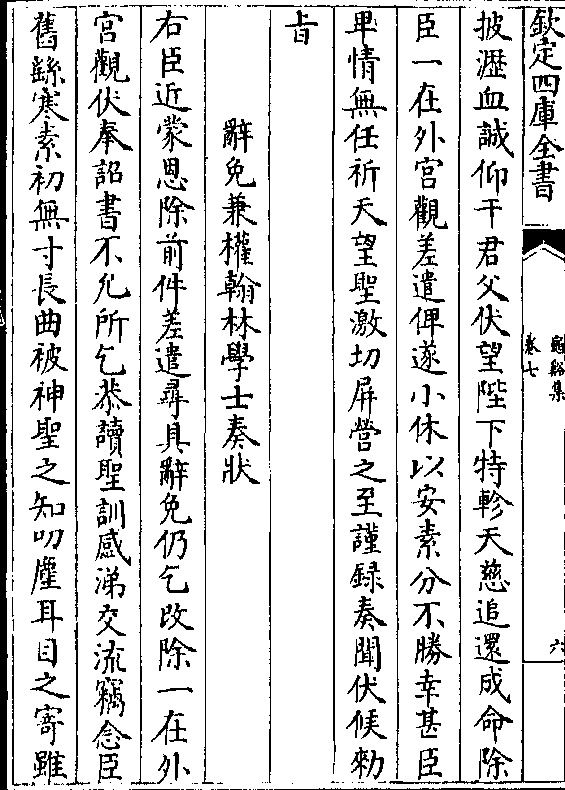 欽定四庫全書
龜谿集
卷七
六
披瀝血誠仰干君父伏望陛下特軫天慈追還成命除
臣一在外宮觀差遣俾遂小休以安素分不勝幸甚臣
畢情無任祈天望聖激切屏營之至謹録奏聞伏候勅
㫖
辭免兼權翰林學士奏狀
右臣近蒙恩除前件差遣尋具辭免仍乞改除一在外
宮觀伏奉詔書不允所乞恭讀聖訓感涕交流竊念臣
舊繇寒素初無寸長曲被神聖之知叨塵耳目之寄雖